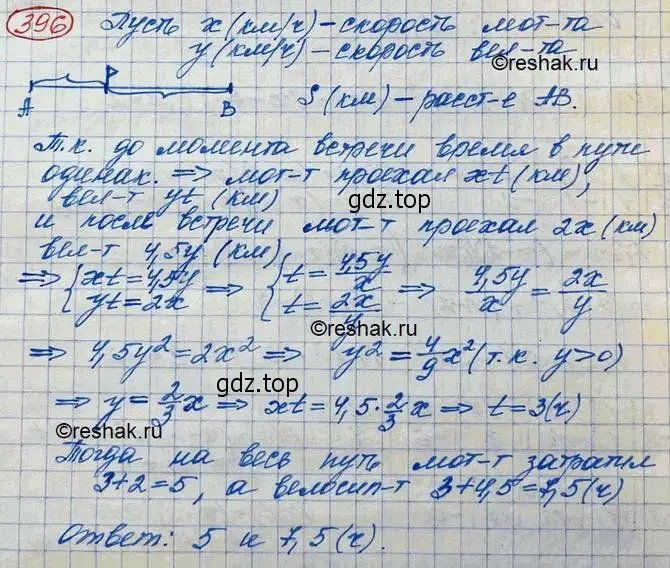 396 Пусть x (км/ч) – скорость мот-та
y (км/ч) – скорость вел-та
©reshak.ru
A P B S (км) – расст-е AB.
Т.к. до момента встречи время в пути
одинак. ⇒ мот-т проехал xt (км),
вел-т yt (км)
gdz.top
и после встречи мот-т проехал 2x (км)
вел-т 4,5y (км)
⇒ { xt = 4,5y yt = 2x ⇒ { t = 4,5y/x t = 2x/y ⇒ 4,5y/x = 2x/y
©reshak.ru
⇒ 4,5y² = 2x² ⇒ y² = 4/9 x² (т.к. y>0)
gdz.top
⇒ y = 2/3 x ⇒ xt = 4,5 · 2/3 x ⇒ t = 3 (ч)
©reshak.ru
Тогда на весь путь мот-т затратил
3+2=5, а велосип-т 3+4,5=7,5 (ч)
©reshak.ru
gdz.top
Ответ: 5 и 7,5 (ч).